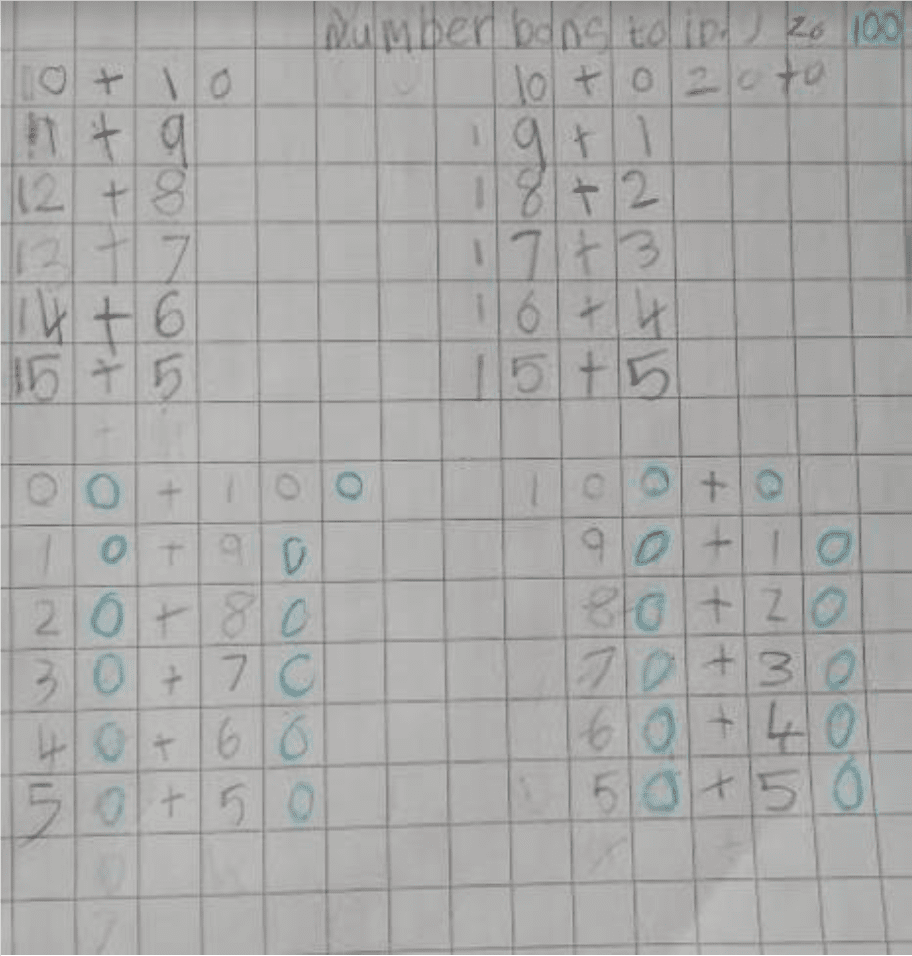 Number bons to 10, 20 100
10 + 10 10 + 0 20 + 0
11 + 9 19 + 1
12 + 8 18 + 2
13 + 7 17 + 3
14 + 6 16 + 4
15 + 5 15 + 5
00 + 100 0 100 0 + 0
10 + 90 90 + 10
20 + 80 80 + 20
30 + 70 70 + 30
40 + 60 60 + 40
50 + 50 50 + 50